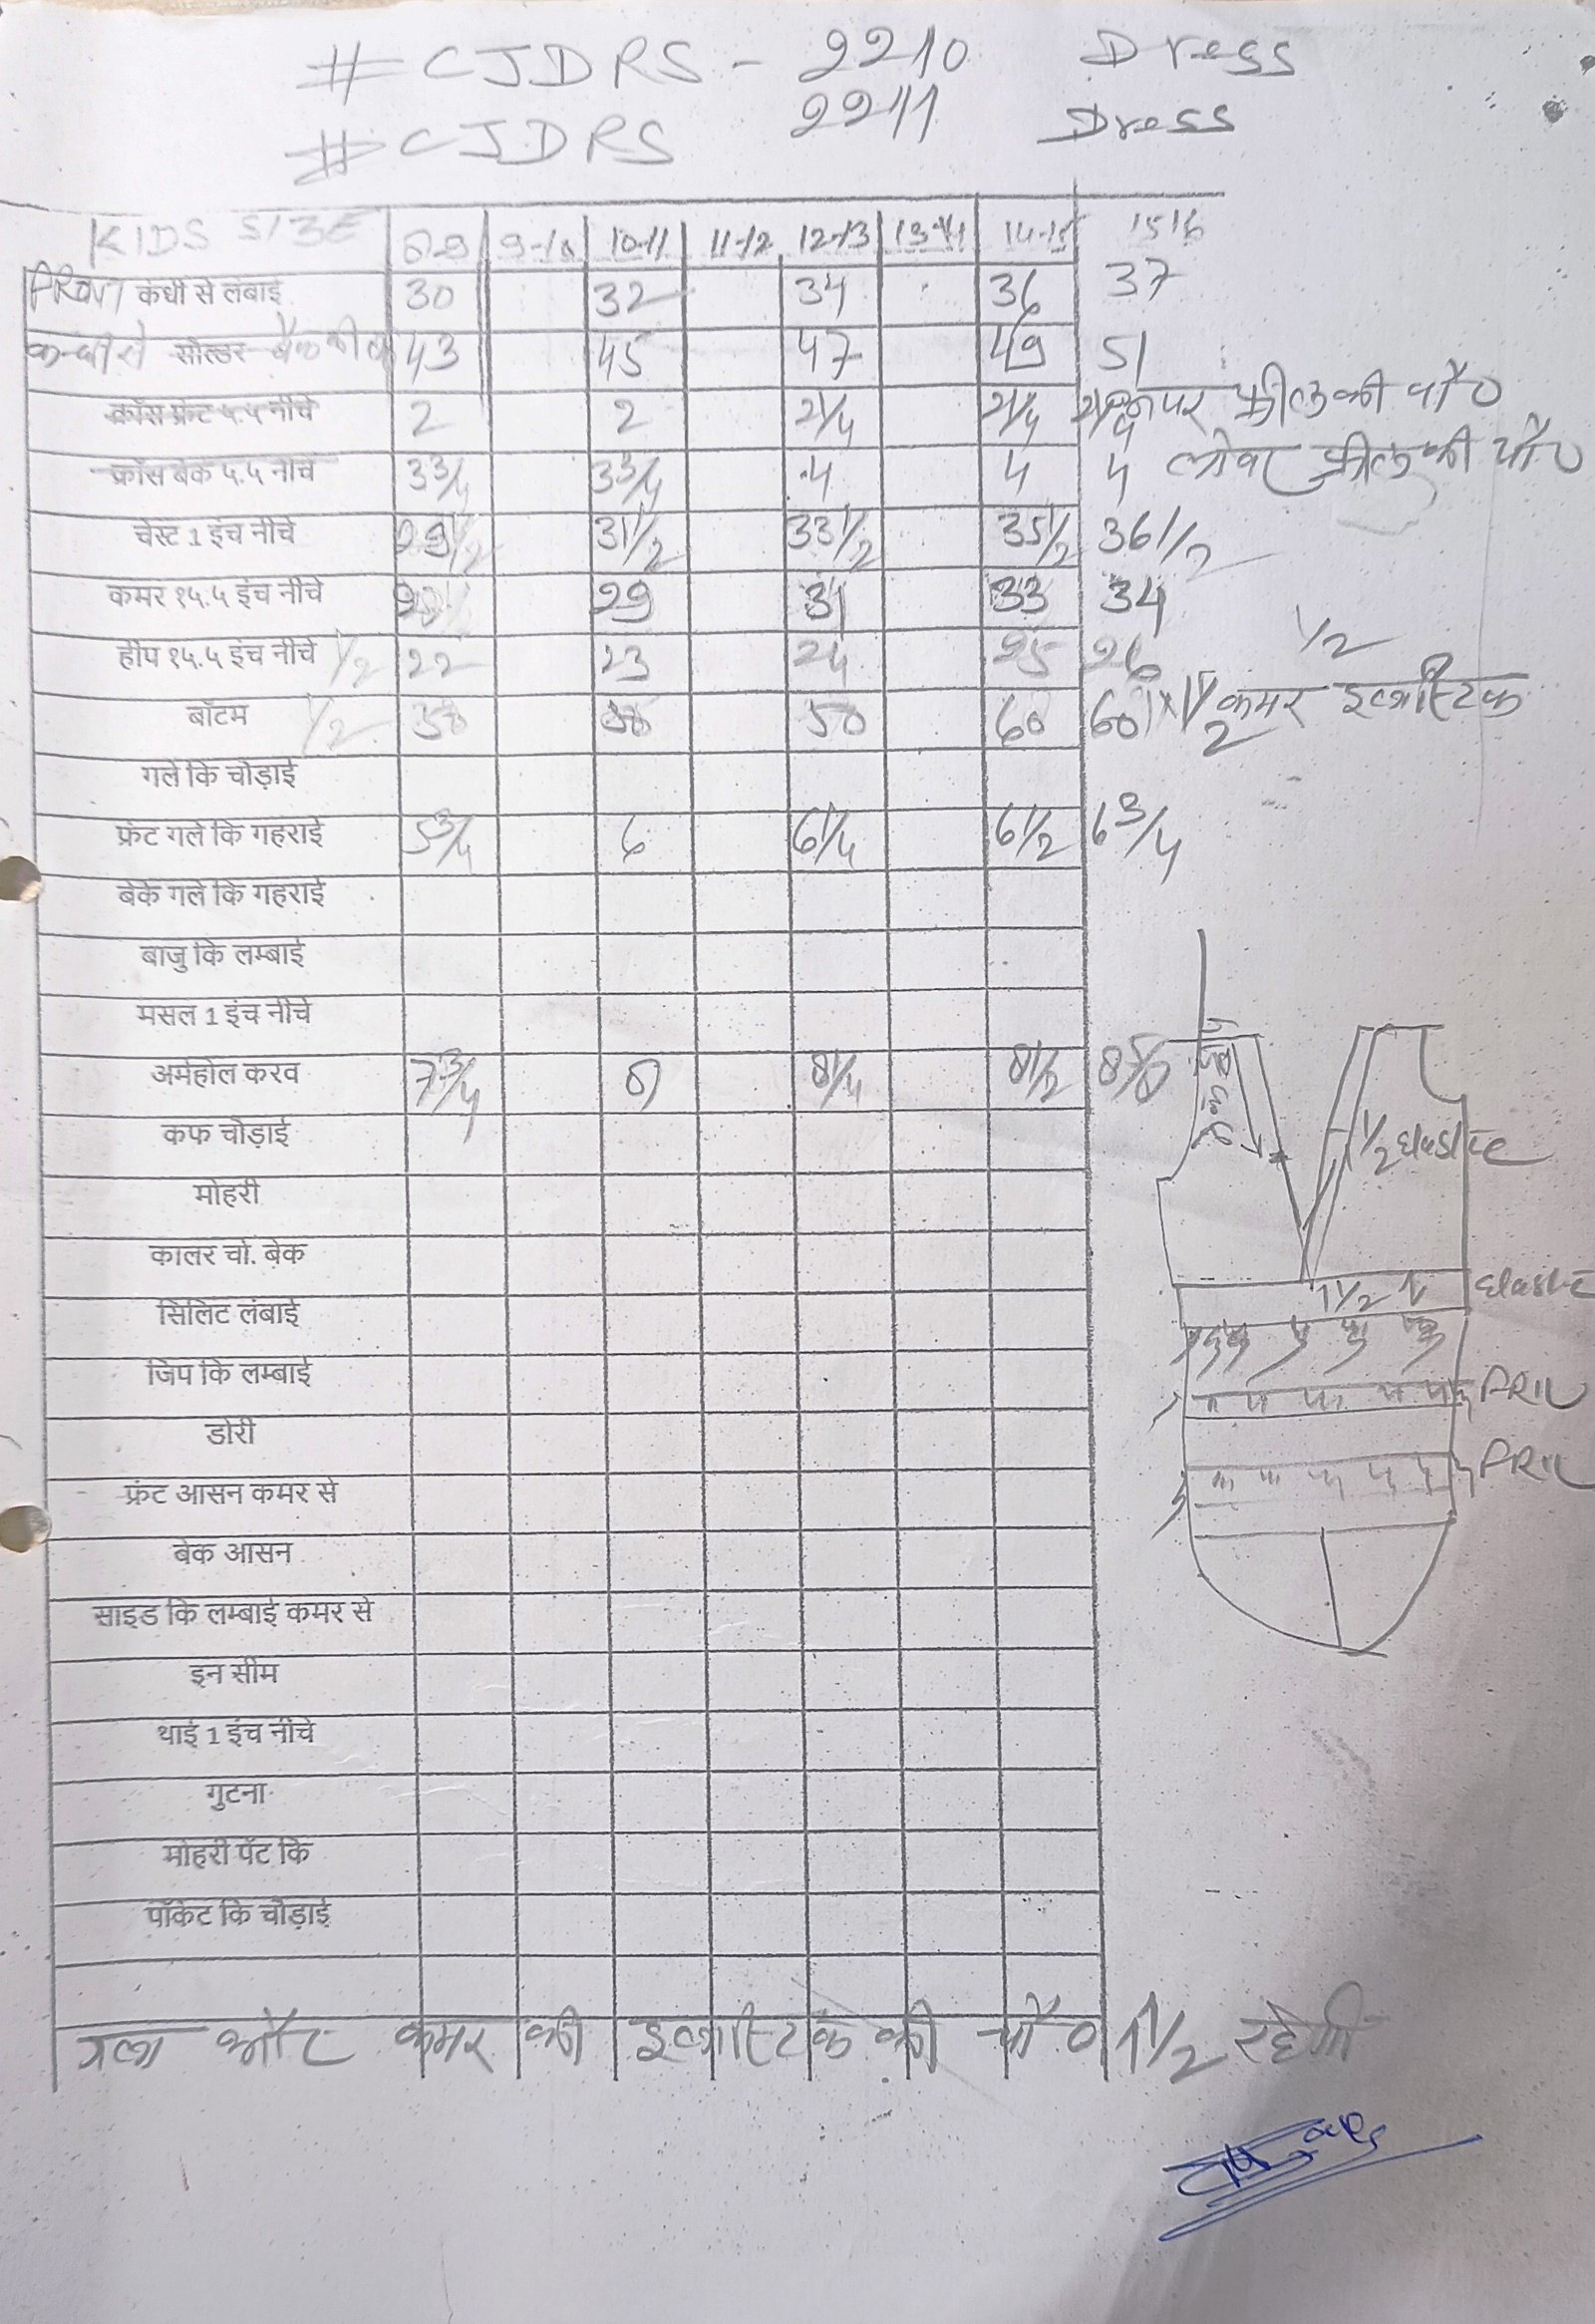 #CJDRS - 2210 Dress
#CJDRS 2211 Dress
KIDS SIZE 8-9 9-10 10-11 11-12 12-13 13-14 14-15 15 16
FRONT कंधी से लंबाई 30 32 34 36 37
कन्धी से सोल्डर बैक की 43 45 47 49 51
क्रॉस फ्रंट ५.५ नीचे 2 2 2 1/4 2 1/4 2 1/4 अपर फ्रील की चौ०
क्रॉस बेक ५.५ नीचे 3 3/4 3 3/4 4 4 4 लोवर फ्रील की चौ०
चेस्ट 1 इंच नीचे 29 1/2 31 1/2 33 1/2 35 1/2 36 1/2
कमर १५.५ इंच नीचे 29 31 33 34
हीप १५.५ इंच नीचे 1/2 22 23 24 25 26 1/2
बॉटम 1/2 58 58 60 60 1 1/2 कमर इलास्टिक
गले कि चोड़ाई
फ्रंट गले कि गहराई 5 3/4 6 6 1/4 6 1/2 6 3/4
बेके गले कि गहराई
बाजु कि लम्बाई
मसल 1 इंच नीचे
अर्महोल करव 7 3/4 8 8 1/4 8 1/2 8 5/8
कफ चोड़ाई
1/2 elastic
मोहरी
कालर चो. बेक
1 1/2 elastic
सिलिट लंबाई
जिप कि लम्बाई
FRIL
डोरी
FRIL
फ्रंट आसन कमर से
बेक आसन
साइड कि लम्बाई कमर से
इन सीम
थाई 1 इंच नीचे
गुटना
मोहरी पॅट कि
पॉकेट कि चोड़ाई
गला और कमर की इलास्टिक की चौ० 1 1/2 रहेगी